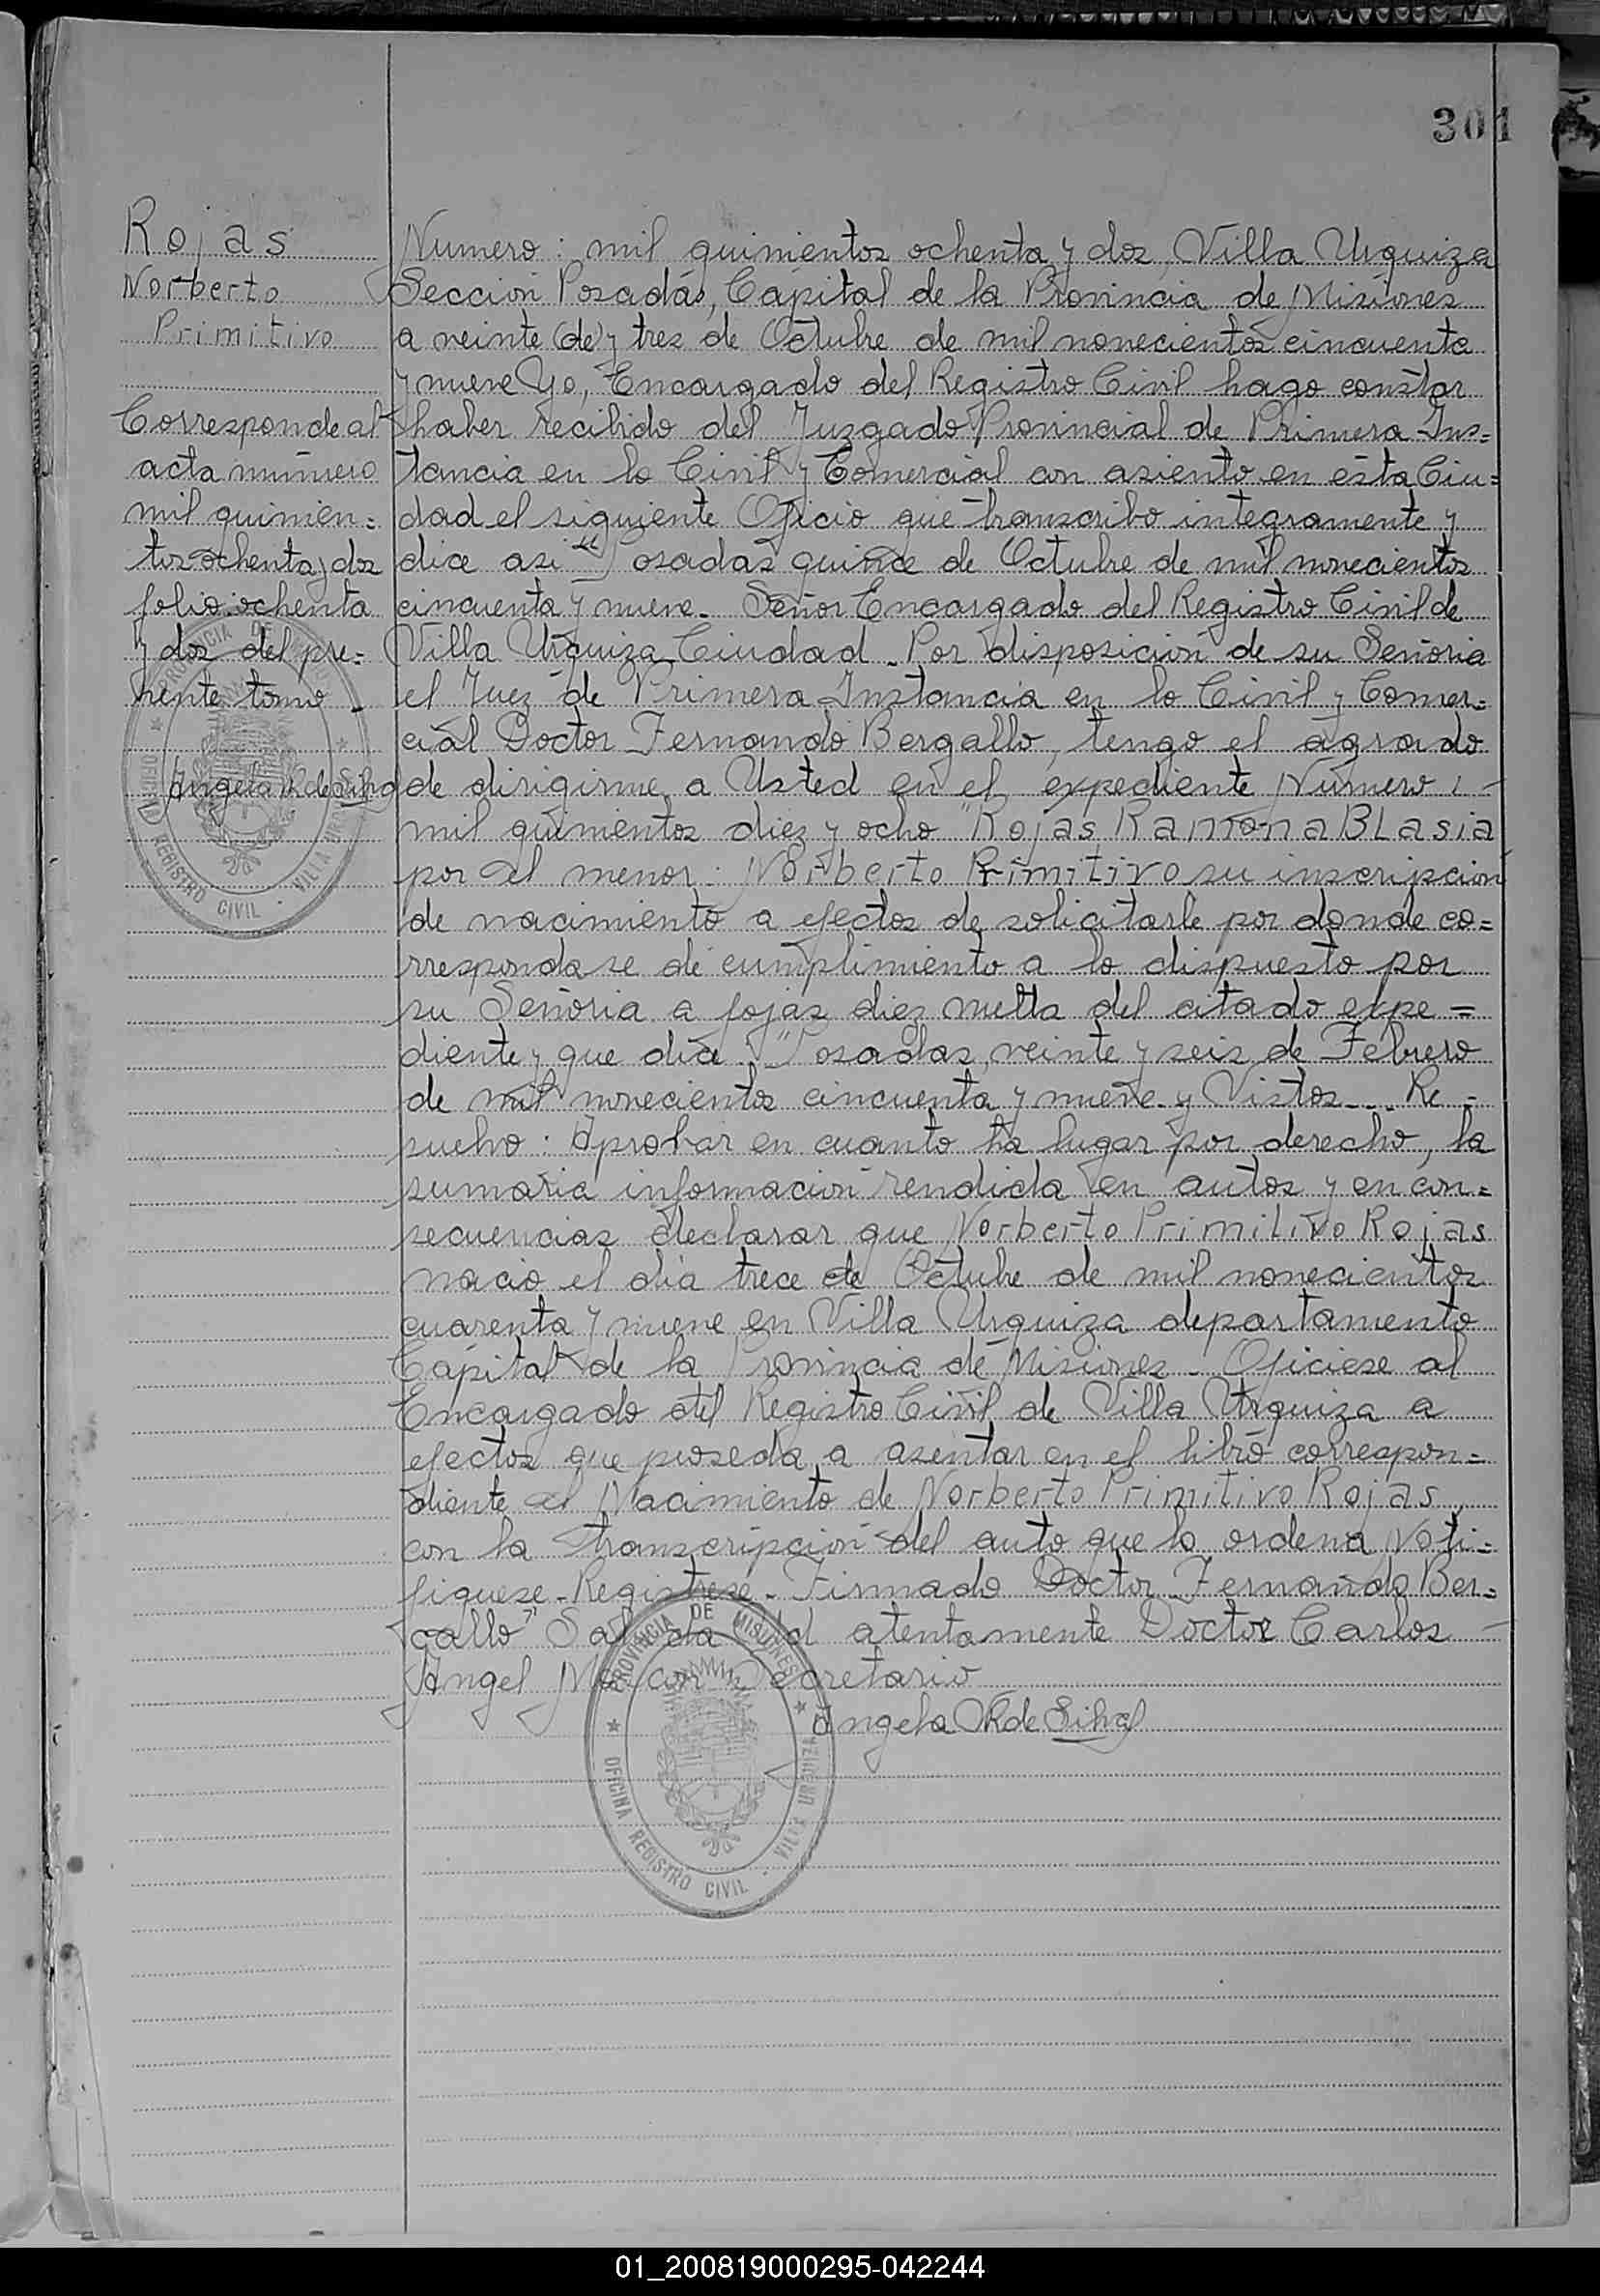 301
Rojas
Norberto
Primitivo
Corresponde al
acta número
mil quinien=
tos ochenta y dos
folio ochenta
y dos del pre=
sente tomo
Angela R de Silva
PROVINCIA DE MISIONES
OFICINA REGISTRO CIVIL · VILLA URQUIZA
Numero: mil quinientos ochenta y dos, Villa Urquiza
Sección Posadas, Capital de la Provincia de Misiones
a veinte (de) y tres de Octubre de mil novecientos cincuenta
y nueve Yo, Encargado del Registro Civil hago constar
haber recibido del Juzgado Provincial de Primera Ins=
tancia en lo Civil y Comercial con asiento en esta Ciu=
dad el siguiente Oficio que transcribo integramente y
dice asi "Posadas quince de Octubre de mil novecientos
cincuenta y nueve. Señor Encargado del Registro Civil de
Villa Urquiza Ciudad. Por disposición de su Señoria
el Juez de Primera Instancia en lo Civil y Comer=
cial Doctor Fernando Bergallo, tengo el agrado
de dirigirme a Usted en el expediente Número : -
mil quinientos diez y ocho "Rojas Ramona Blasia
por el menor: Norberto Primitivo su inscripcion
de nacimiento a efectos de solicitarle por donde co=
rrespondase de cumplimiento a lo dispuesto por
su Señoria a fojas diez vuelta del citado expe=
diente y que dice. "Posadas, veinte y seis de Febrero
de mil novecientos cincuenta y nueve. y Vistos... Re -
suelvo: Aprobar en cuanto ha lugar por derecho, la
sumaria información rendida en autos y en con=
secuencias declarar que Norberto Primitivo Rojas
nacio el dia trece de Octubre de mil novecientos
cuarenta y nueve en Villa Urquiza departamento
Capital de la Provincia de Misiones. Oficiese al
Encargado del Registro Civil de Villa Urquiza a
efectos que proseda a asentar en el libro correspon=
diente el Nacimiento de Norberto Primitivo Rojas,
con la transcripción del auto que lo ordena. Noti=
fiquese. Registrese. Firmado Doctor Fernando Ber=
gallo" Saluda Ud atentamente Doctor Carlos -
Angel Secretario
Angela R de Silva
PROVINCIA DE MISIONES
OFICINA REGISTRO CIVIL · VILLA URQUIZA
01_200819000295-042244